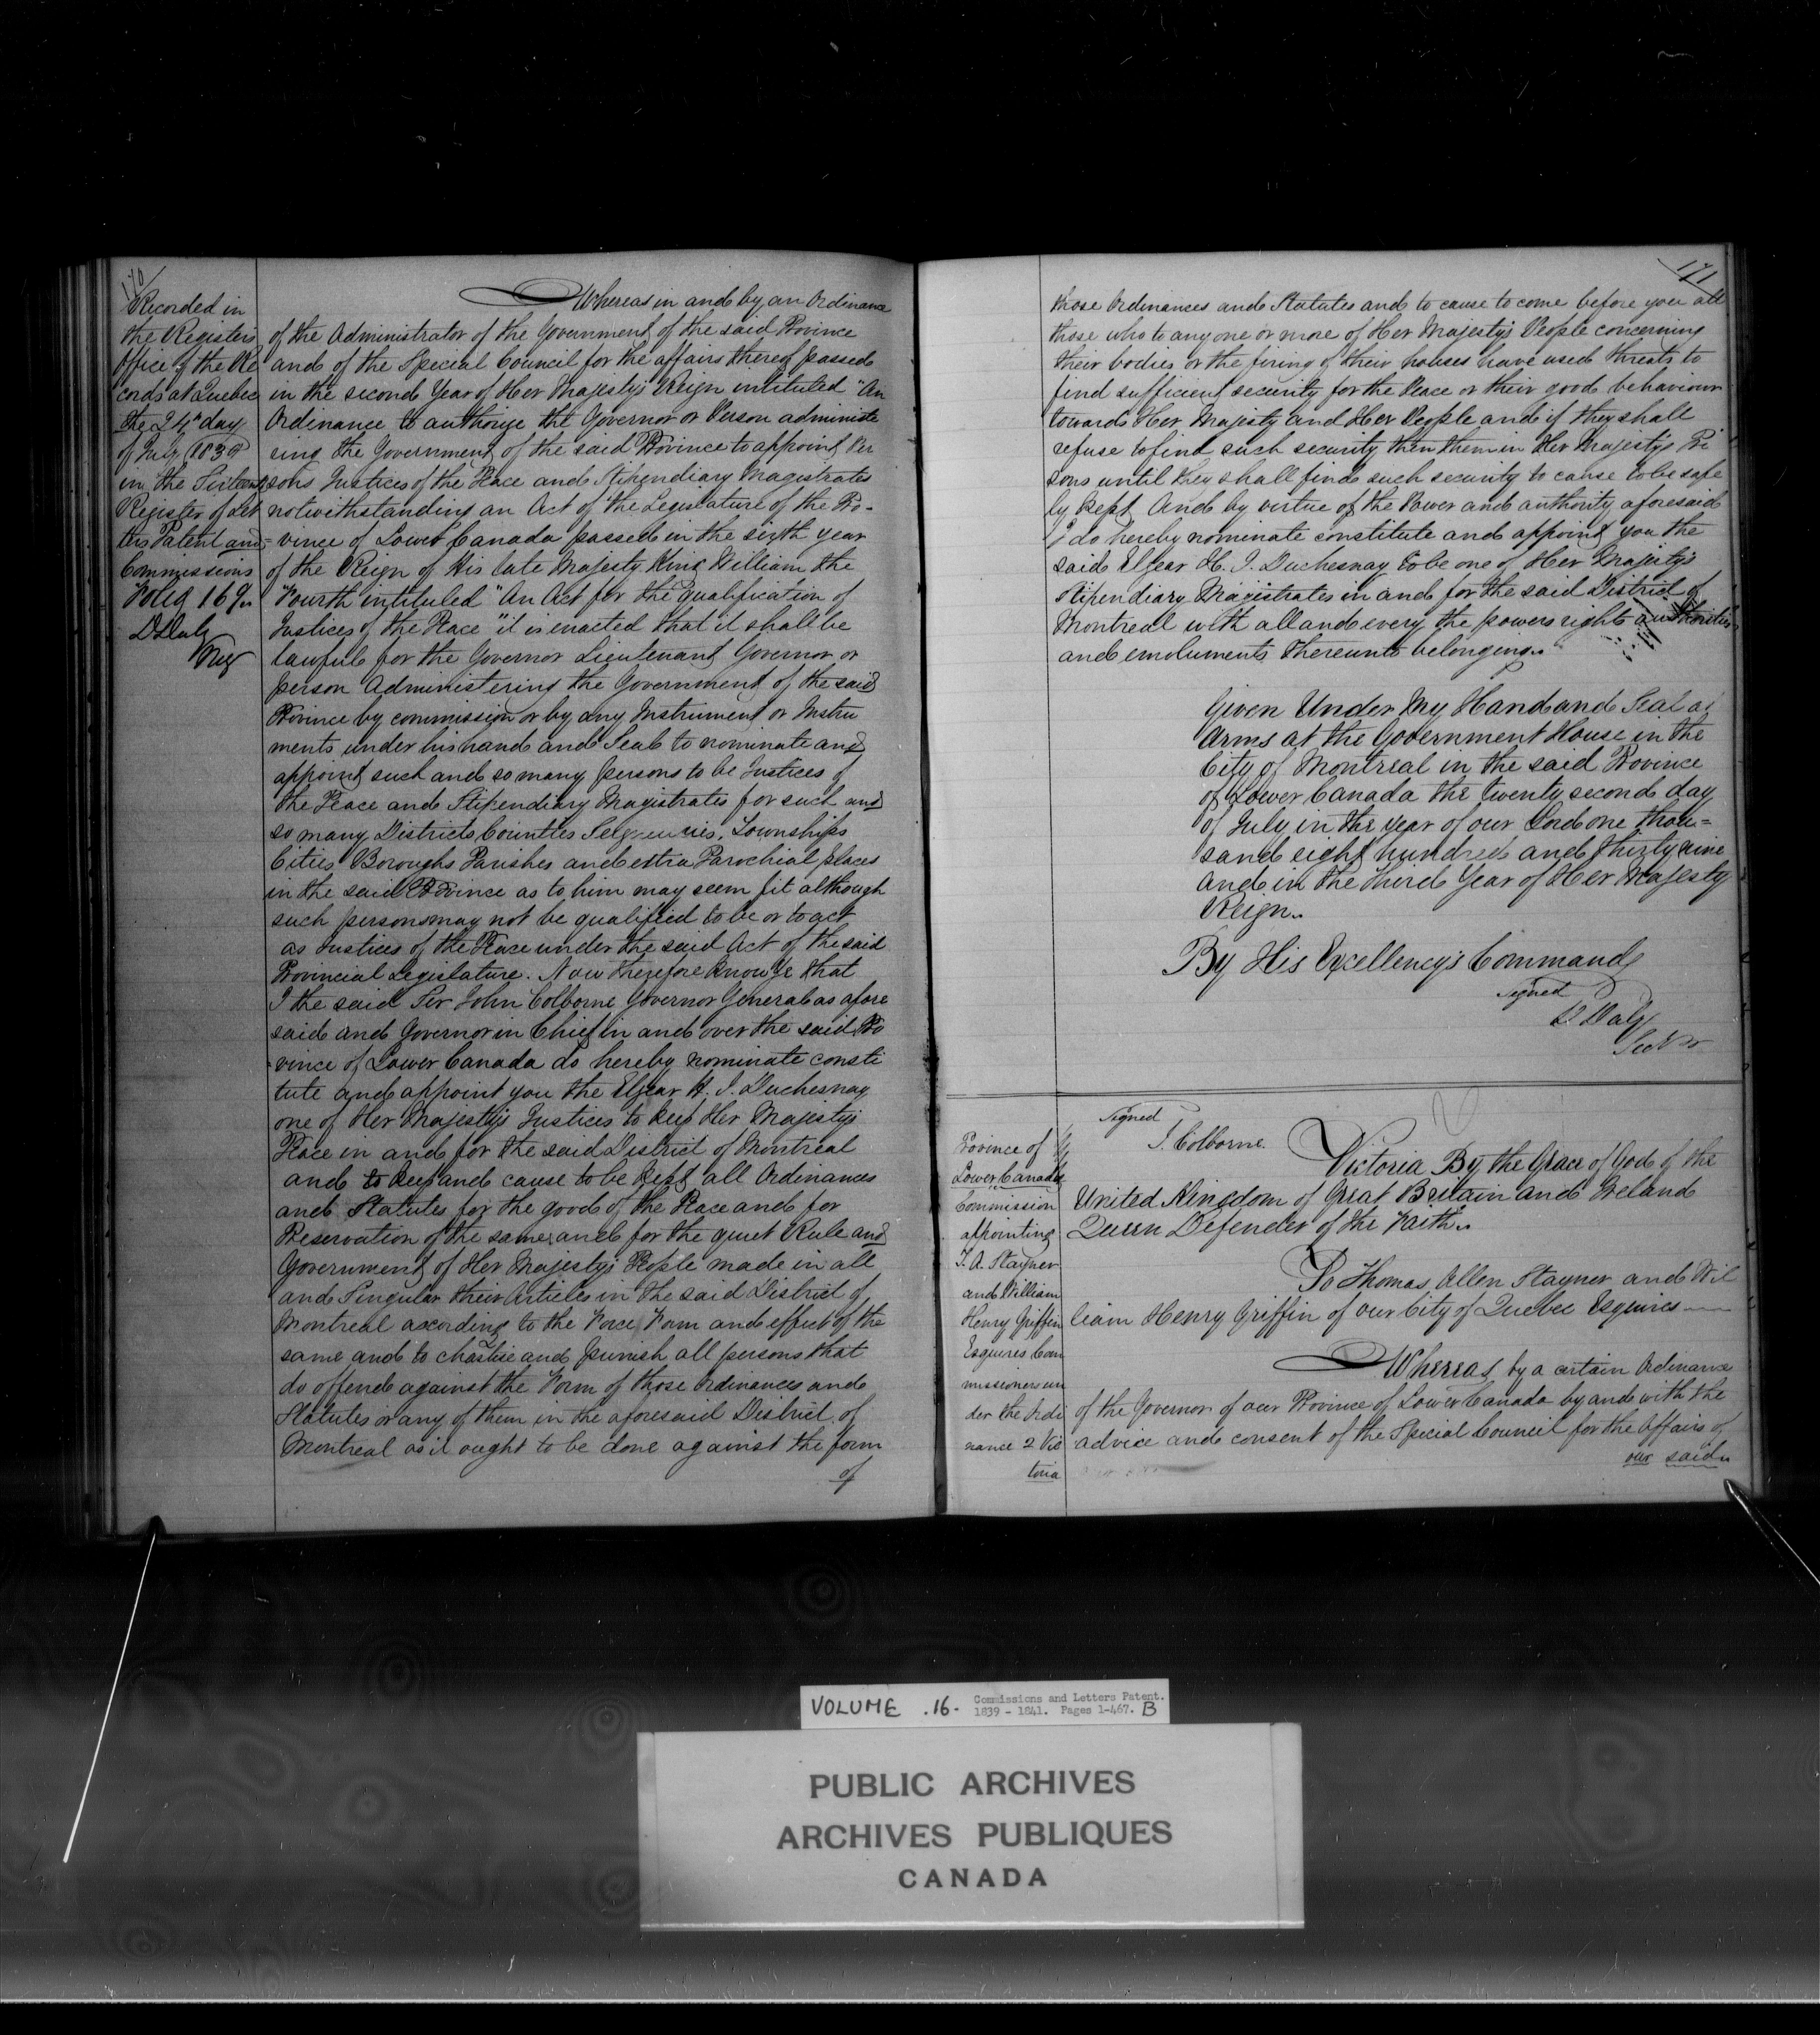 170
Recorded in
the Registers
Office of the Re
cords at Quebec
the 24th day
of July 1839
in the Sixteenth
Register of Let
ters Patent and
Commissions
Folio 169..
D Daly
Reg
Whereas in and by an Ordinance
of the Administrator of the Government of the said Province
and of the Special Council for the affairs thereof passed
in the second Year of Her Majesty's Reign intituled "An
Ordinance to authorize the Governor or Person administe
ring the Government of the said Province to appoint Per
sons Justices of the Peace and Stipendiary Magistrates
notwithstanding an Act of the Legislature of the Pro-
vince of Lower Canada passed in the sixth year
of the Reign of His late Majesty King William the
Fourth intituled "An Act for the qualification of
Justices of the Peace" it is enacted that it shall be
lawful for the Governor Lieutenant Governor or
person Administering the Government of the said
Province by commission or by any Instrument or Instru
ments under his hand and Seal to nominate and
appoint such and so many persons to be Justices of
the Peace and Stipendiary Magistrates for such and
so many Districts Counties Seigneuries, Townships
Cities Boroughs Parishes and extra Parochial places
in the said Province as to him may seem fit although
such persons may not be qualified to be or to act
as Justices of the Peace under the said Act of the said
Provincial Legislature. Now therefore know Ye that
I the said Sir John Colborne Governor General as afore
said and Governor in Chief in and over the said Pro
vince of Lower Canada do hereby nominate consti
tute and appoint you the Elzear H. J. Duchesnay
one of Her Majesty's Justices to keep Her Majesty's
Peace in and for the said District of Montreal
and to keep and cause to be kept all Ordinances
and Statutes for the good of the Peace and for
Preservation of the same and for the quiet Rule and
Government of Her Majesty's People made in all
and Singular their Articles in the said District of
Montreal according to the Force Form and effect of the
same and to chastise and punish all persons that
do offend against the Form of those Ordinances and
Statutes or any of them in the aforesaid District of
Montreal as it ought to be done against the form
of
171
those Ordinances and Statutes and to cause to come before you all
those who to any one or more of Her Majesty's People concerning
their bodies or the firing of their houses have used threats to
find sufficient security for the Peace or their good behaviour
towards Her Majesty and Her People and if they shall
refuse to find such security then them in Her Majesty's Pri
sons until they shall find such security to cause to be safe
ly kept And by virtue of the Power and authority aforesaid
I do hereby nominate constitute and appoint you the
said Elzear H. J. Duchesnay to be one of Her Majesty's
Stipendiary Magistrates in and for the said District of
Montreal with all and every the powers rights authorities
and emoluments thereunto belonging..
Given Under My Hand and Seal at
Arms at the Government House in the
City of Montreal in the said Province
of Lower Canada the twenty second day
of July in the year of our Lord one thou=
sand eight hundred and thirty nine
and in the third Year of Her Majesty
Reign..
By His Excellency's Command
Signed
D Daly
Province of
Lower Canada
Commission
appointing
T. A. Stayner
and William
Henry Griffin
Esquires Com
missioners un
der the Ordi
nance 2 Vic
toria
Signed
J. Colborne.
Victoria By the Grace of God of the
United Kingdom of Great Britain and Ireland
Queen Defender of the Faith..
To Thomas Allen Stayner and Wil
liam Henry Griffin of our City of Quebec Esquires
Whereas by a certain Ordinance
of the Governor of our Province of Lower Canada by and with the
advice and consent of the Special Council for the Affairs of
our said..
VOLUME .16. Commissions and Letters Patent.
1839 - 1841. Pages 1-467. B
PUBLIC ARCHIVES
ARCHIVES PUBLIQUES
CANADA